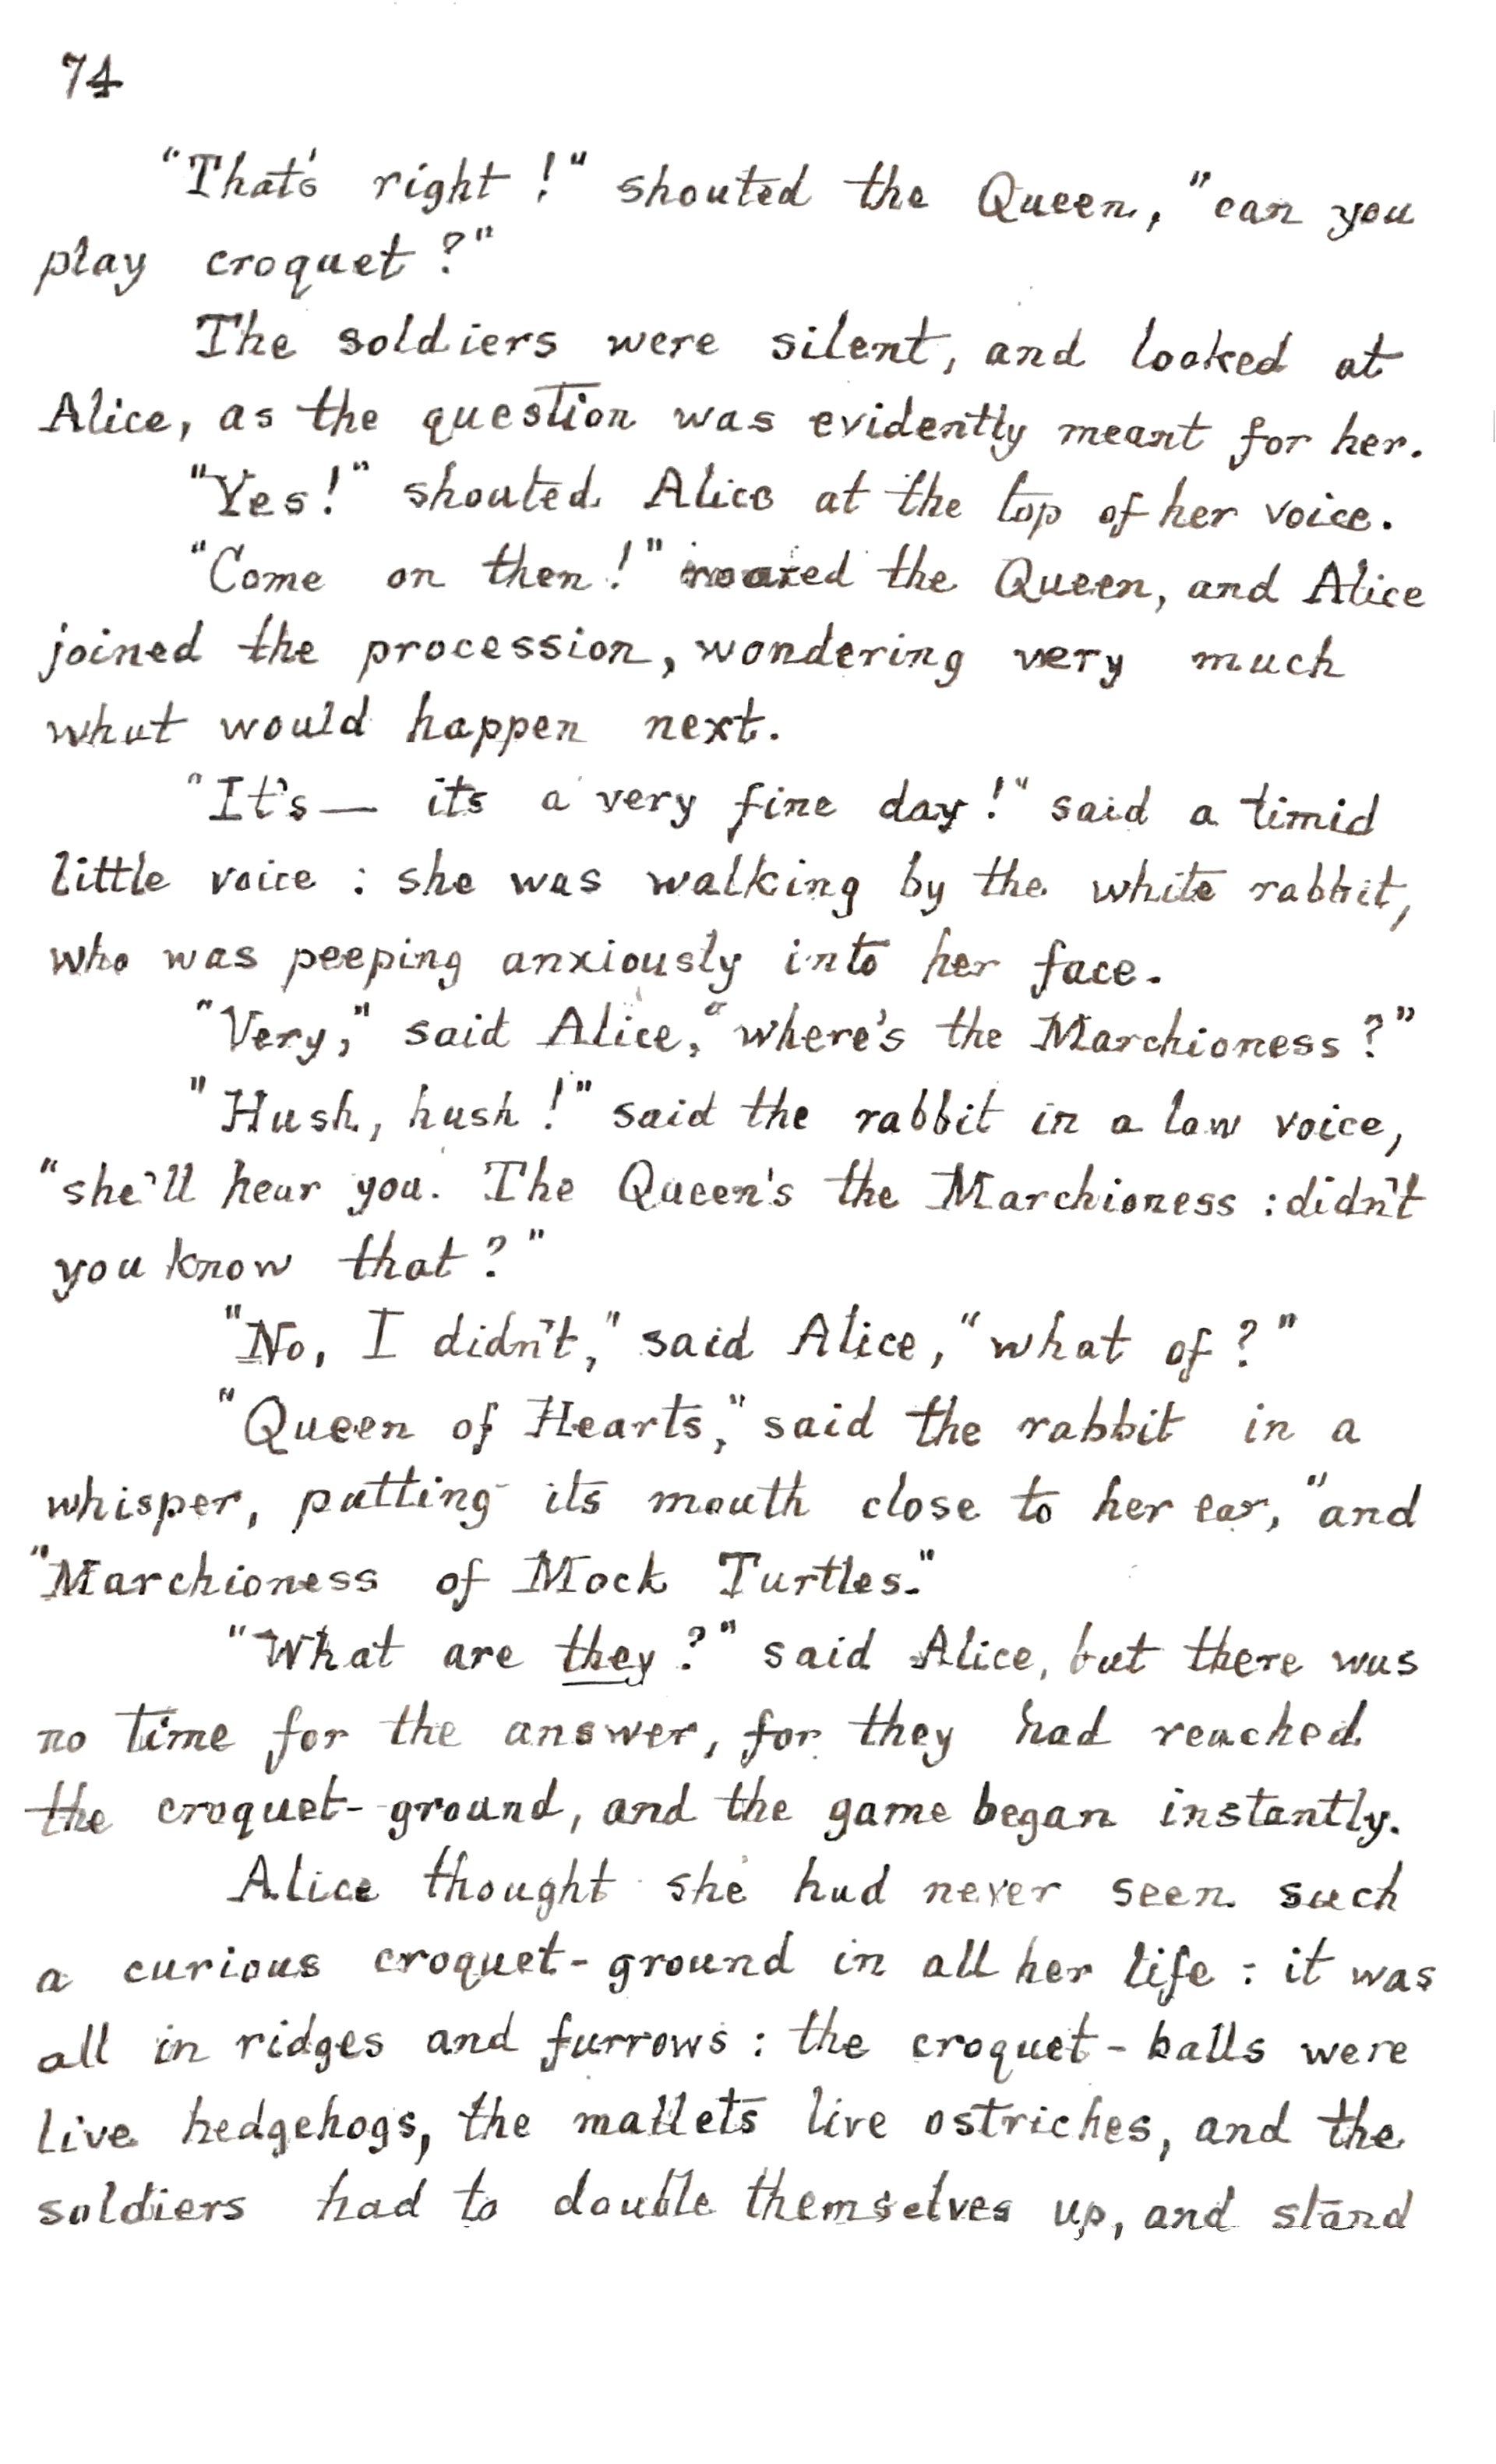 74
"That's right!" shouted the Queen, "can you
play croquet?"
The soldiers were silent, and looked at
Alice, as the question was evidently meant for her.
"Yes!" shouted Alice at the top of her voice.
"Come on then!" roared the Queen, and Alice
joined the procession, wondering very much
what would happen next.
"It's— its a very fine day!" said a timid
little voice: she was walking by the white rabbit,
who was peeping anxiously into her face.
"Very," said Alice, "where's the Marchioness?"
"Hush, hush!" said the rabbit in a low voice,
"she'll hear you. The Queen's the Marchioness: didn't
you know that?"
"No, I didn't," said Alice, "what of?"
"Queen of Hearts," said the rabbit in a
whisper, putting its mouth close to her ear, "and
"Marchioness of Mock Turtles."
"What are they?" said Alice, but there was
no time for the answer, for they had reached
the croquet-ground, and the game began instantly.
Alice thought she had never seen such
a curious croquet-ground in all her life: it was
all in ridges and furrows: the croquet-balls were
live hedgehogs, the mallets live ostriches, and the
soldiers had to double themselves up, and stand